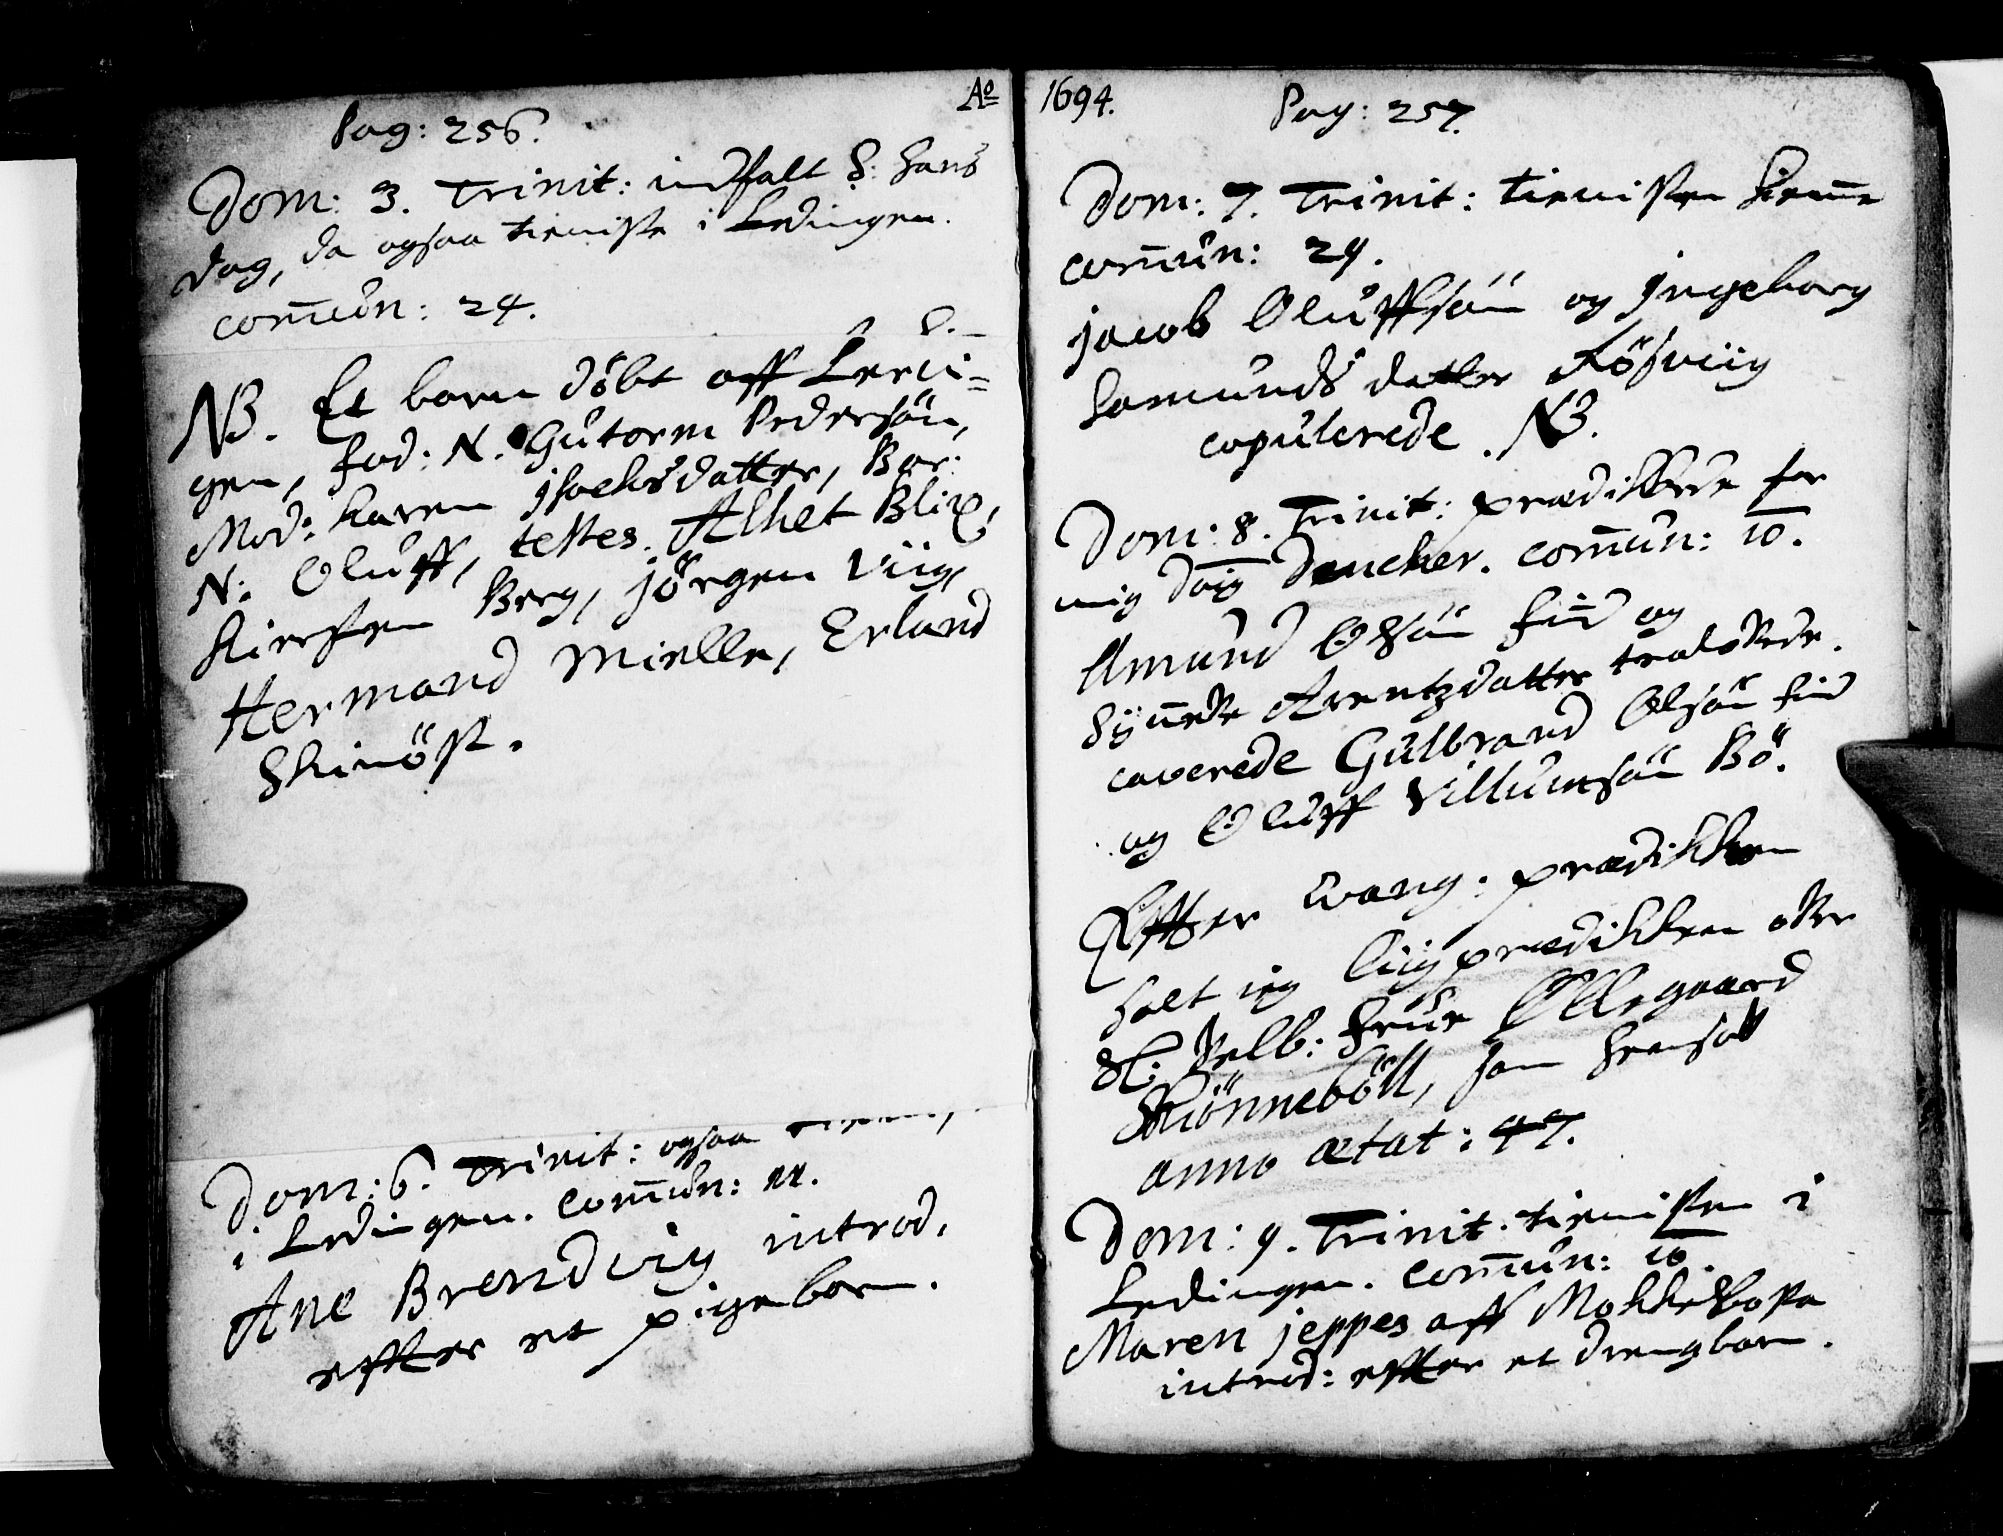 Pag: 256.
Dom: 3. Trinit: indfalt S: Hans
dag, da ogsaa tieniste i Lødingen.
com̄un: 24.
NB. Et barn døbt aff Leru=
gen, fad: N. Gutorm Pedersön,
Mod: Karen Isachsdatter, Bar:
N: Oluff, testes. Alhet Blix,
Kiersten Berg, Jörgen Viig,
Hermand Mielle, Erland
Skinöst.
Dom: 6. Trinit: ogsaa
i Lødingen. Com̄un: 11.
Ane Brendvig introd.
effter et pigebarn.
Ao 1694.
Pag: 257.
Dom: 7. Trinit: tienisten hiem̄e
com̄un: 29.
Jacob Oluffsön og Ingeborg
Samundsdatter Rösviig
copulerede. NB.
Dom: 8. Trinit: prædikkede for
mig Dn̄s Dencker. com̄un: 10.
Amund Olsön Find og
Syn̄eve Arentzdatter trolovede.
caverede Gulbrand Olsön find
og Oluff Villumsön Bö.
Effter Evang: prædikken
holt jeg Liigprædikken over
Sl: Velb: Frue Ollegaard
Skiönneböll, som hensov
anno ætat: 47.
Dom: 9. Trinit. tienisten i
Lødingen. Com̄un: 10.
Maren Jeppes aff
introd: effter et drengbarn.